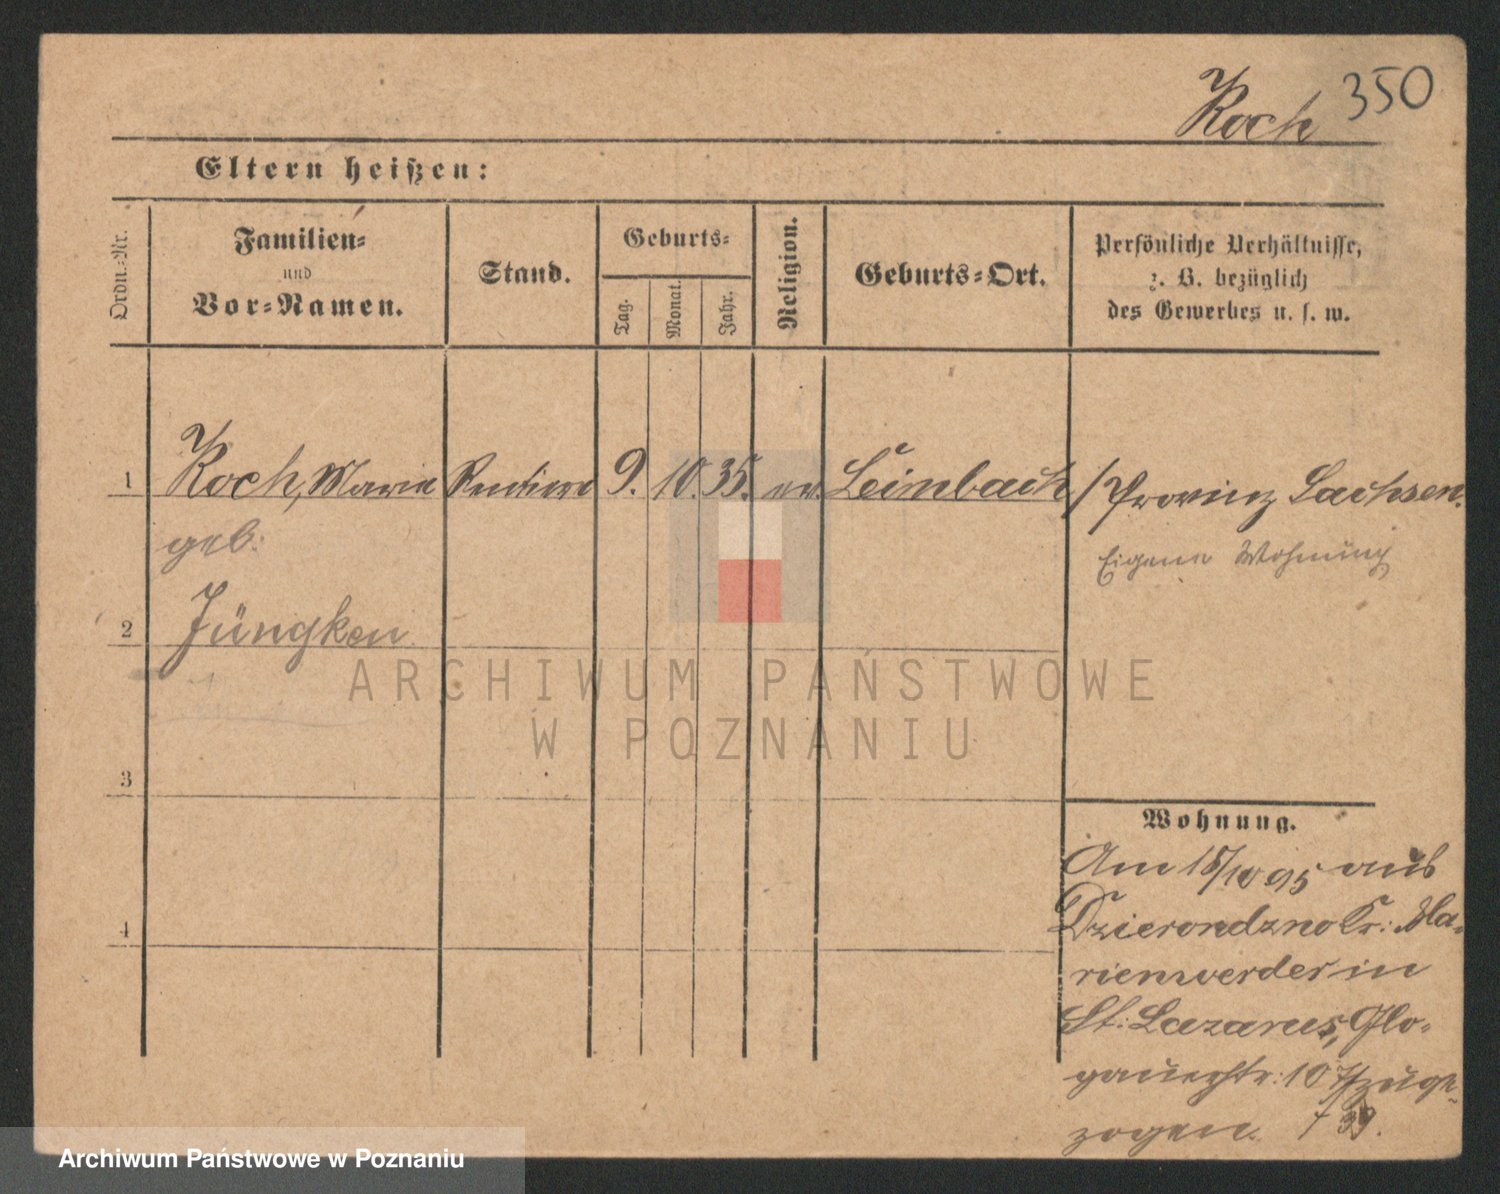 Koch 350
Eltern heißen:
Ordn.-Nr.
Familien-
und
Vor-Namen.
Stand.
Geburts-
Tag.
Monat.
Jahr.
Religion.
Geburts-Ort.
Persönliche Verhältnisse,
z. B. bezüglich
des Gewerbes u. s. w.
1 Koch, Marie Rentiere 9. 10. 35. ev. Leimbach / Provinz Sachsen.
geb. Eigene Wohnung
2 Jüngken
3
4
Wohnung.
Am 15/10 95 aus
Dzierondzno Kr: Ma-
rienwerder in
St: Lazarus, Glo-
gauerstr: 10 zuge-
zogen.
ARCHIWUM PAŃSTWOWE
W POZNANIU
Archiwum Państwowe w Poznaniu